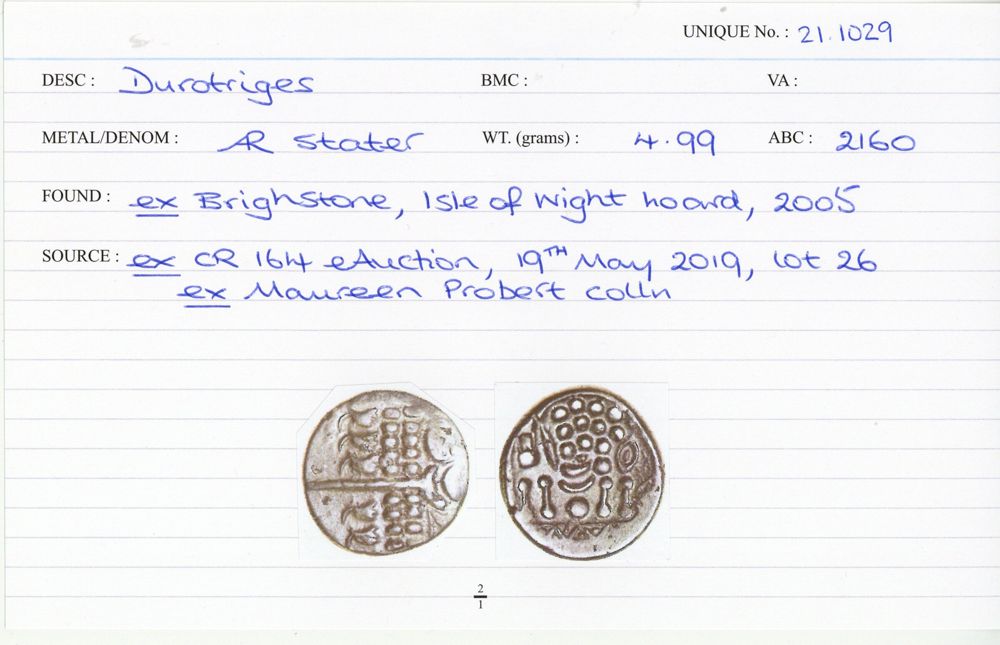 UNIQUE No. : 21.1029
DESC : Durotriges BMC : VA :
METAL/DENOM : AR stater WT. (grams) : 4.99 ABC : 2160
FOUND : ex Brighstone, Isle of Wight hoard, 2005
SOURCE : ex CR 164 eAuction, 19TH May 2019, lot 26
ex Maureen Probert colln
2
1